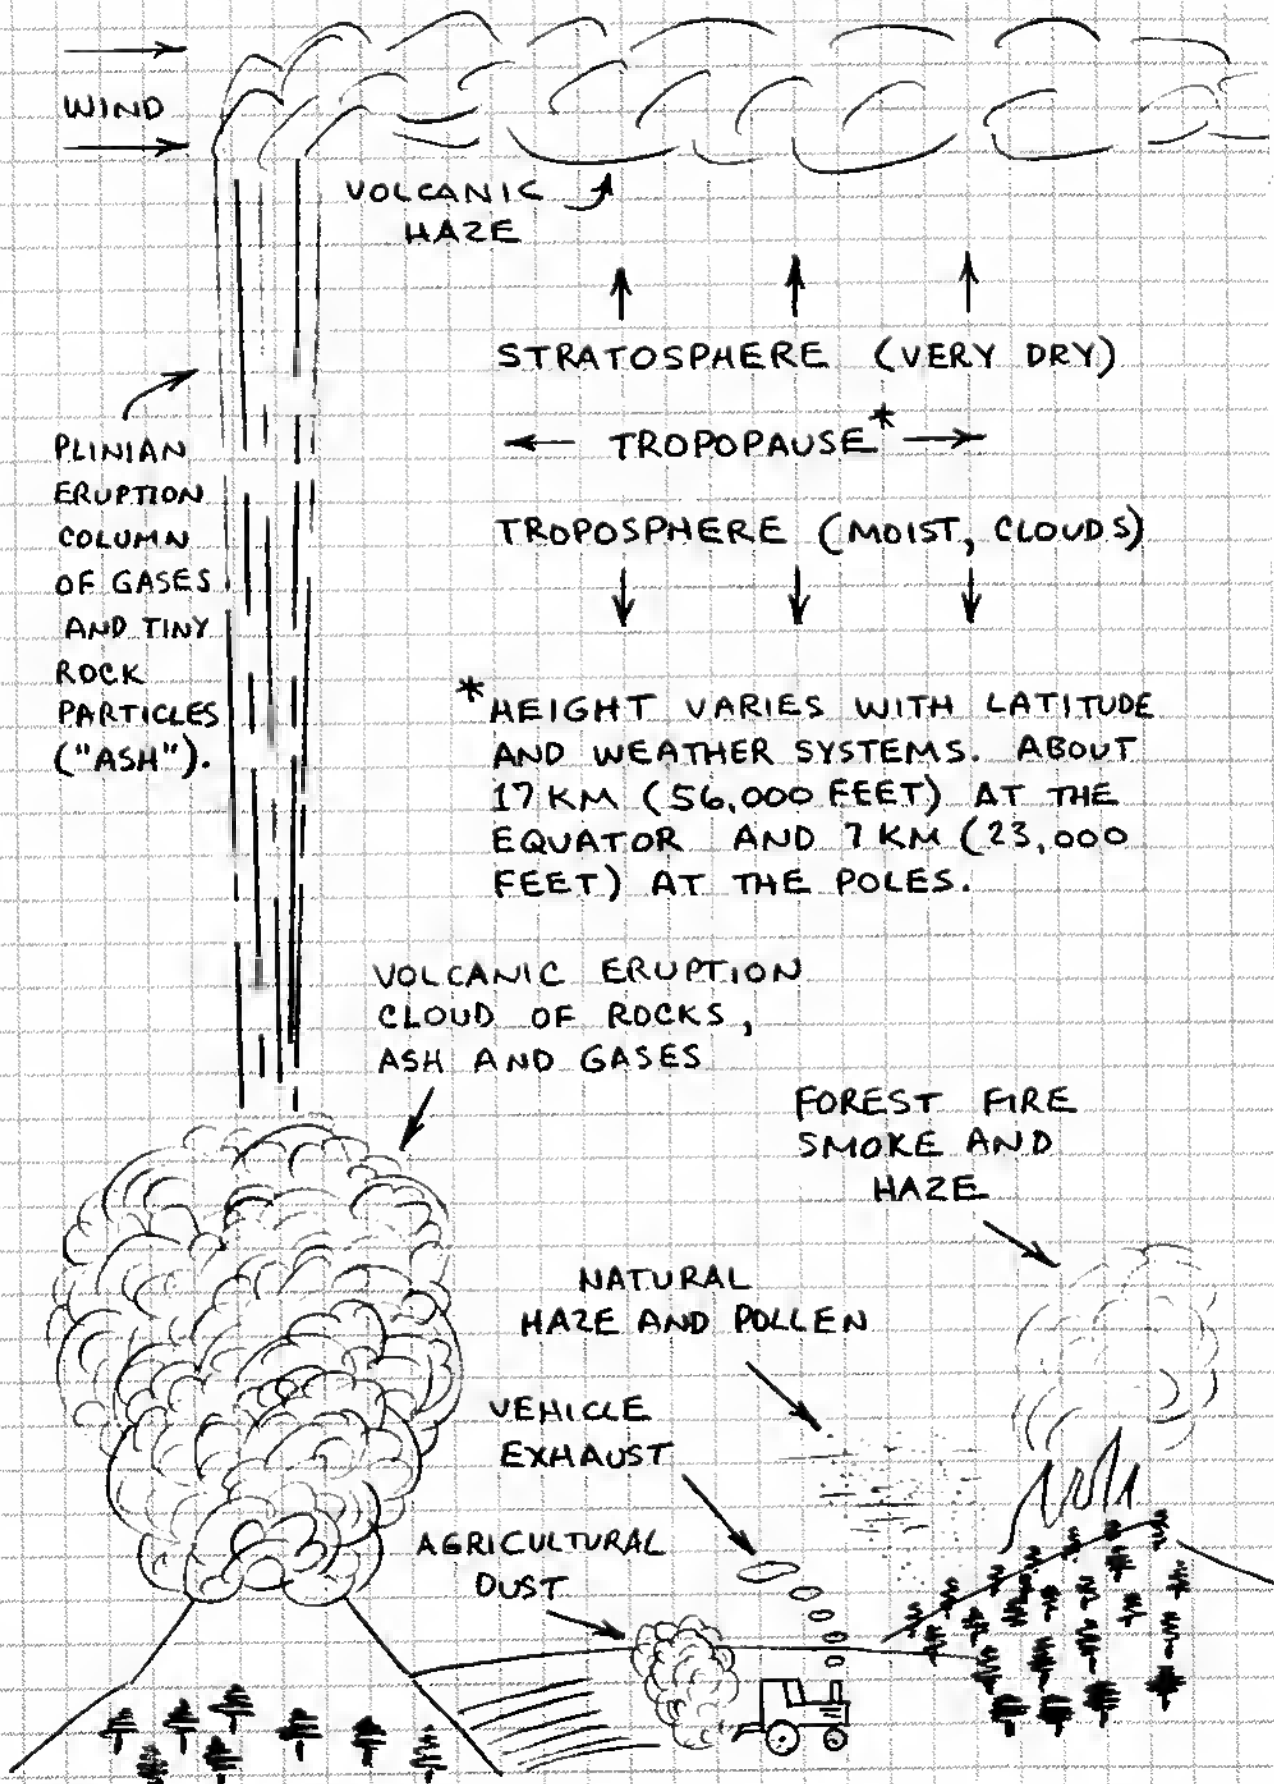 WIND
VOLCANIC
HAZE
STRATOSPHERE (VERY DRY)
TROPOPAUSE*
TROPOSPHERE (MOIST, CLOUDS)
PLINIAN
ERUPTION
COLUMN
OF GASES
AND TINY
ROCK
PARTICLES
("ASH").
*HEIGHT VARIES WITH LATITUDE
AND WEATHER SYSTEMS. ABOUT
17 KM (56,000 FEET) AT THE
EQUATOR AND 7 KM (23,000
FEET) AT THE POLES.
VOLCANIC ERUPTION
CLOUD OF ROCKS,
ASH AND GASES
FOREST FIRE
SMOKE AND
HAZE
NATURAL
HAZE AND POLLEN
VEHICLE
EXHAUST
AGRICULTURAL
DUST